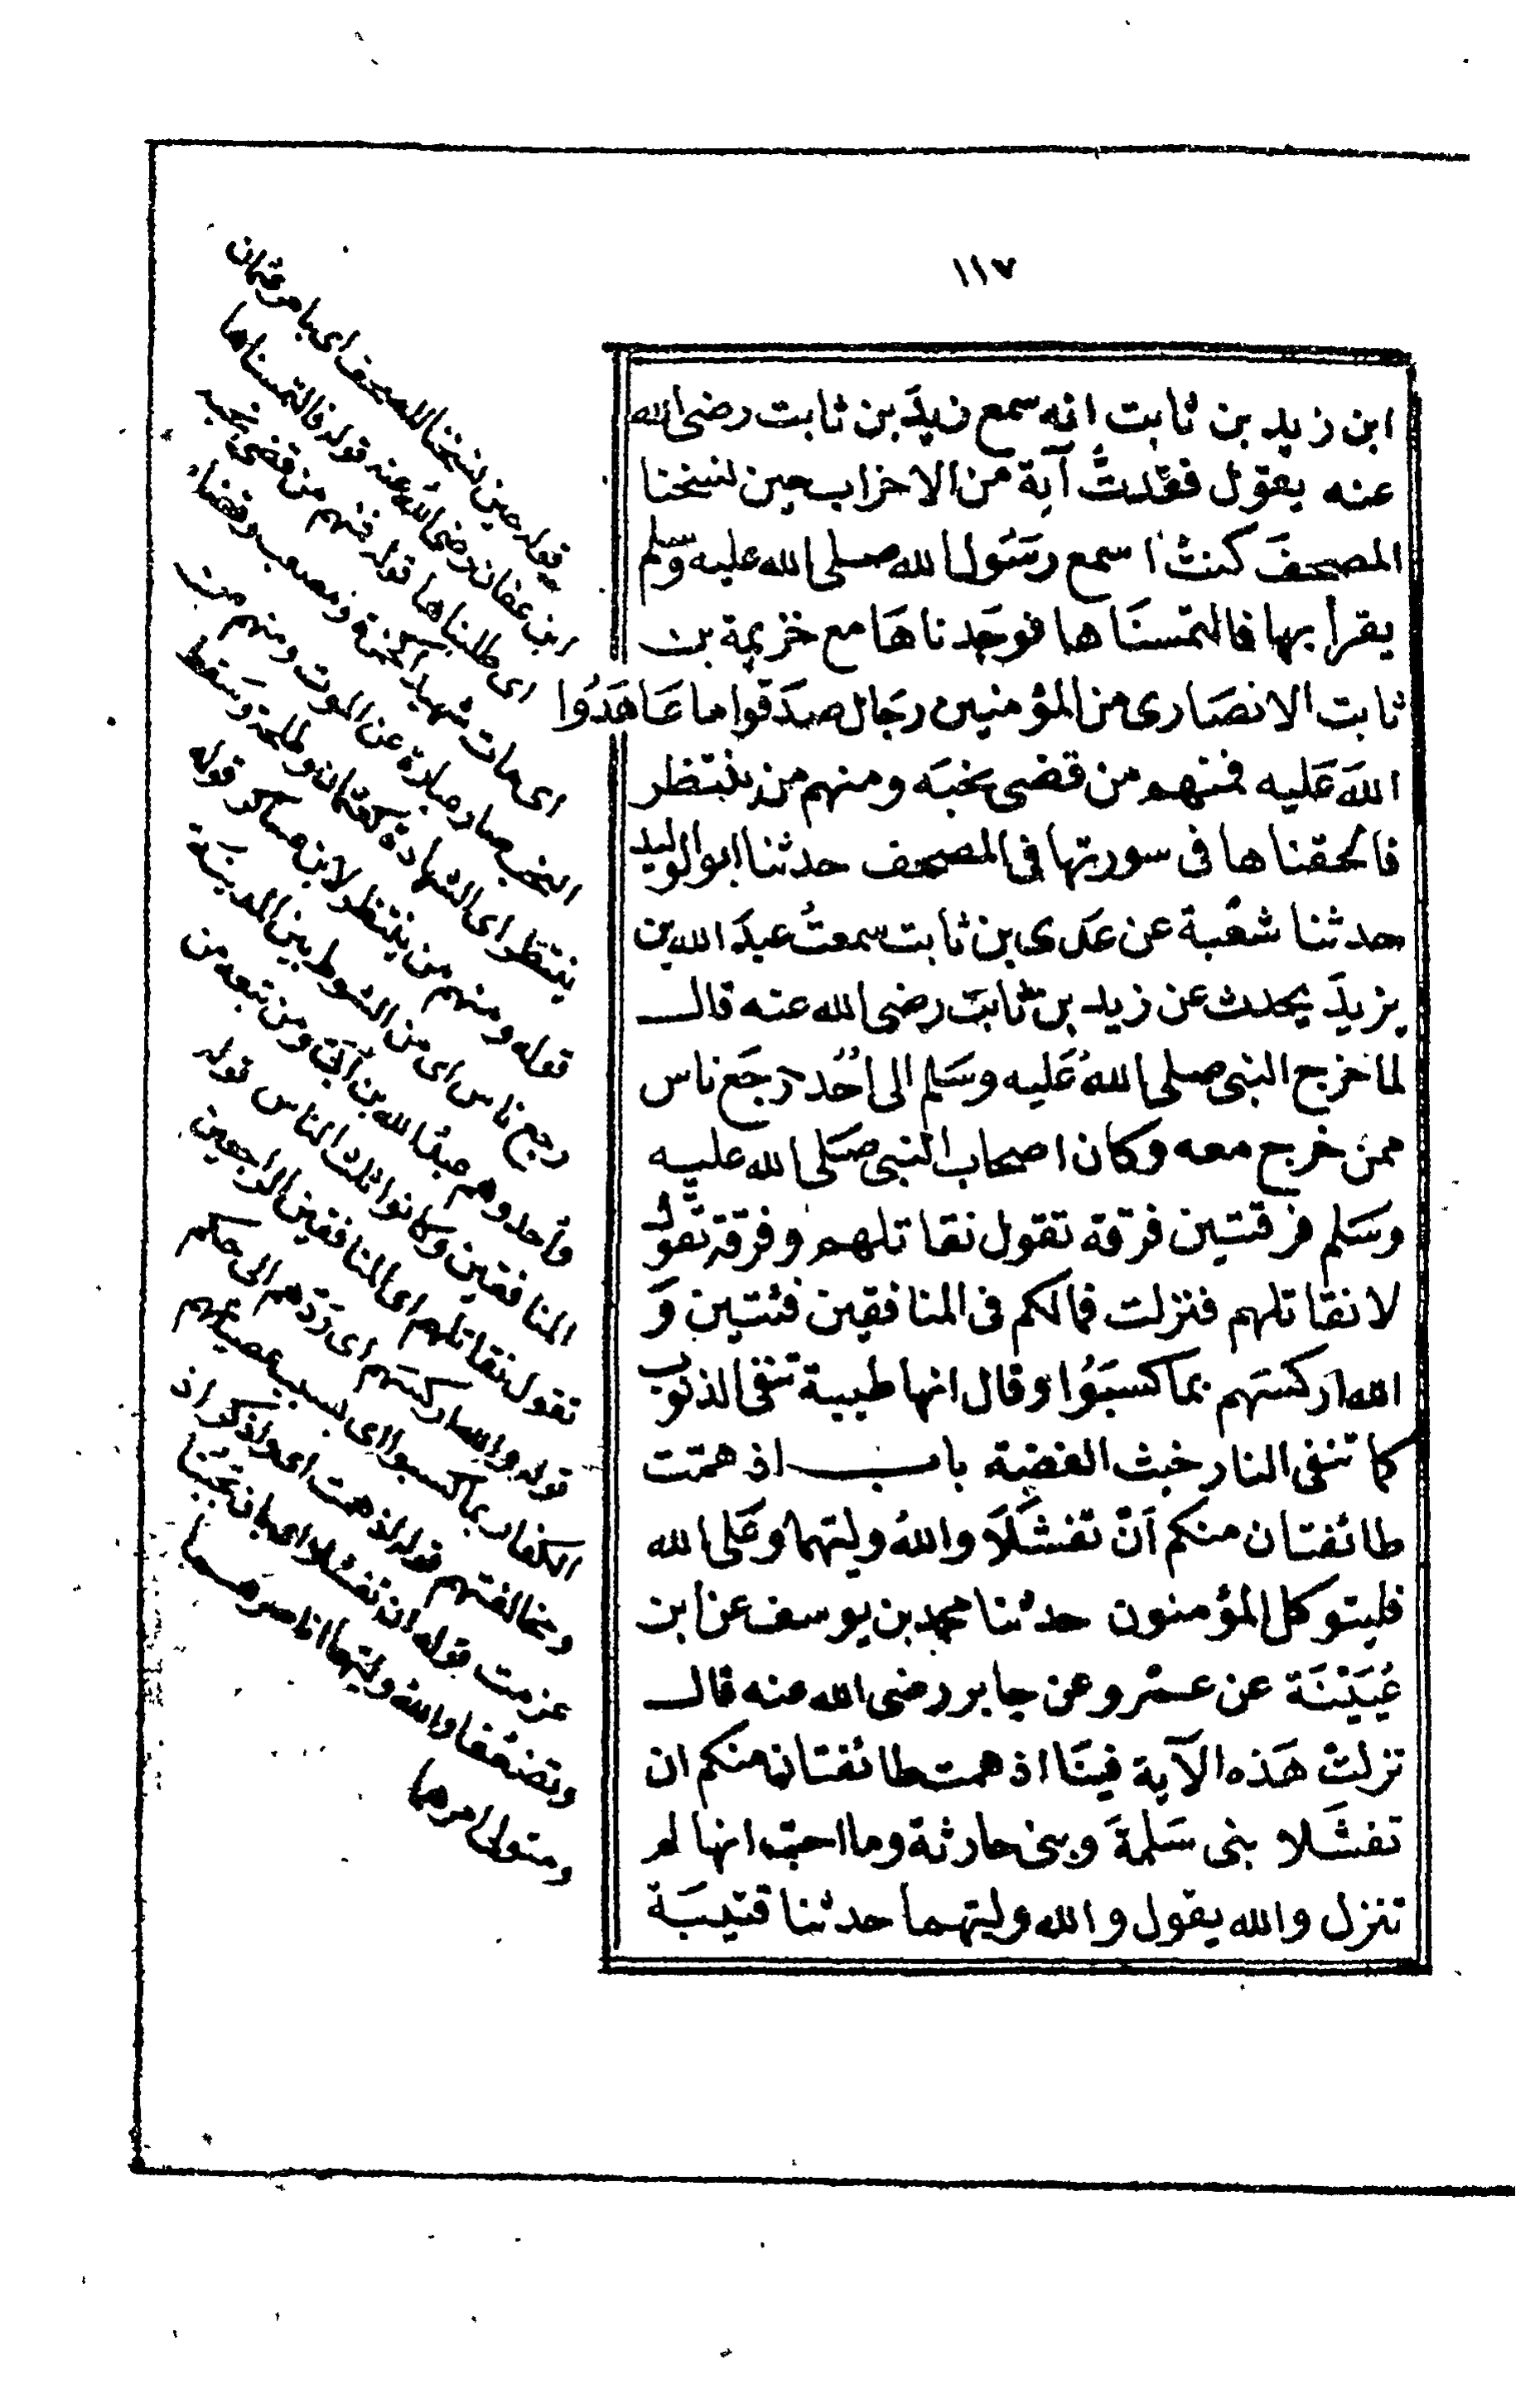 ١١٧
ابن زيد بن ثابت انه سمع زيدَ بن ثابت رضى الله
عنه يقول فقدتُّ آية من الاحزاب حين نسخنا
المصحفَ كنتُ اسمع رسَول الله صلى الله عليه وسلم
يقرأ بها فالتمسنَاها فوجَدناهَا مع خزيمة بن
ثابت الانصَارى من المؤمنين رجَال صدَقوا ما عَاهَدُوا
اللهَ عَليه فمنهم من قضى نحبَه ومنهم من ينتظر
فالحقناها فى سورتها فى المصحف حدثنا ابو الوليد
حدثنا شعُبة عن عَدى بن ثابت سمعتُ عبدَ الله بن
يزيدَ يحدث عن زيد بن ثابتَ رضى الله عنه قال
لما خرج النبى صلى اللهُ عَليه وسَلم الى اُحُد رجَع ناس
ممن خرج معه وكان اصحاب النبى صَلى الله عليه
وسَلم فرقتين فرقة تقول نقاتلهم وفرقة تقول
لا نقاتلهم فنزلت فمالكم فى المنافقين فئتين وَ
الله اركسَهم بما كسبَوُا وقال انها طيبة تنفى الذنوب
كما تنفى النار خبث الفضة باب اذ همّت
طائفتان منكم اَنْ تفشَلَا واللهُ وليّهما وعَلى الله
فليتوكل المؤمنون حدثنا محمد بن يوسف عن ابن
عُيَيْنَة عن عمْرو عن جابر رضى الله عنه قال
نزلتْ هَذه الآية فينَا اذ همت طائفتان منكم ان
تفشَلا بنى سَلمةَ وبنى حارثة وما احبّ انها لم
تنزل والله يقول والله وليّهما حدثنا قتيبَة
قوله حين نسخنا المصحف اى بامر عثمان
ابن عفان رضى الله عنه قوله فالتمسناها
اى طلبناها قوله فمنهم من قضى نحبه
اى مات شهيدا كحمزة ومصعب وقضاء
النحب صار عبارة عن الموت ومنهم من
ينتظر اى الشهادة كعثمان وطلحة وسَقط
قوله ومنهم من ينتظر لابن عساكر قوله
رجع ناس اى من الشوط بين المدينَة
واُحد وهم عبدُ الله بن اُبَى ومن تبعه من
المنافقين وكانوا ثلث الناس قوله
تقول نقاتلهم اى المنافقين الراجعين
قوله والله اركسَهم اى رَدّهم الى حكم
الكفار بما كسبوا اى بسبب عصيانهم
ومخالفتهم قوله اذ همت اى واذكر اذ
عزمت قوله ان تفشلا اى بان تجبنا
وتضعفا والله وليّهما اى ناصرهما
ومتولى امرهما